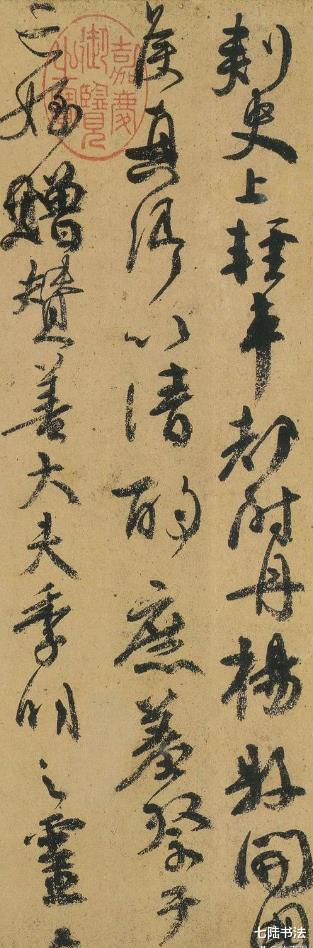 刺史上輕車都尉丹楊縣開國
侯真卿以清酌庶羞祭于
亡姪贈贊善大夫季明之靈
嘉慶御覽之寶
七陆书法